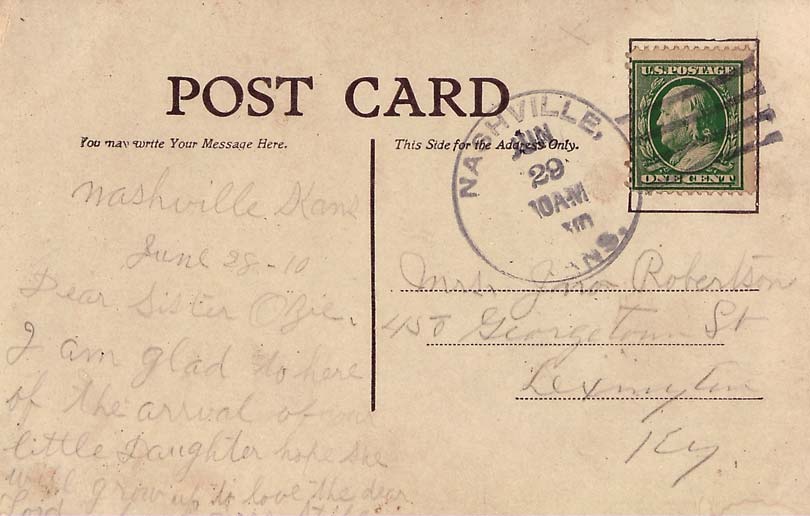 POST CARD
You may write Your Message Here.
This Side for the Address Only.
U.S. POSTAGE
ONE CENT
NASHVILLE,
JUN
29
10AM
ANS.
Nashville Kans
June 28-10
Dear Sister Ozie.
I am glad to here
of the arrival of
little Daughter hope she
will grow up to love the dear
Lord
Mrs. Robertson
450 Georgetown St
Lexington
Ky.